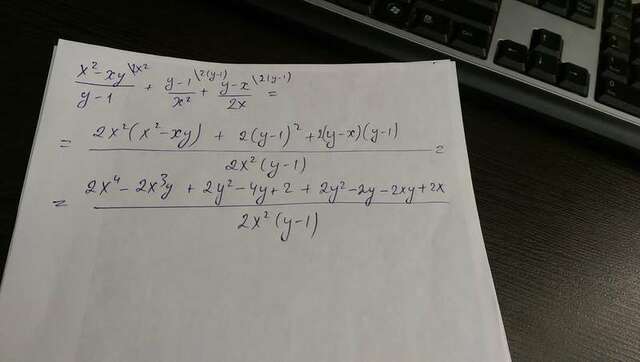 (x²-xy)/(y-1) \2x² + (y-1)/x² \2(y-1) + (y-x)/2x \2(y-1) =
= (2x²(x²-xy) + 2(y-1)² + 2(y-x)(y-1))/(2x²(y-1)) =
= (2x⁴ - 2x³y + 2y² - 4y + 2 + 2y² - 2y - 2xy + 2x)/(2x²(y-1))